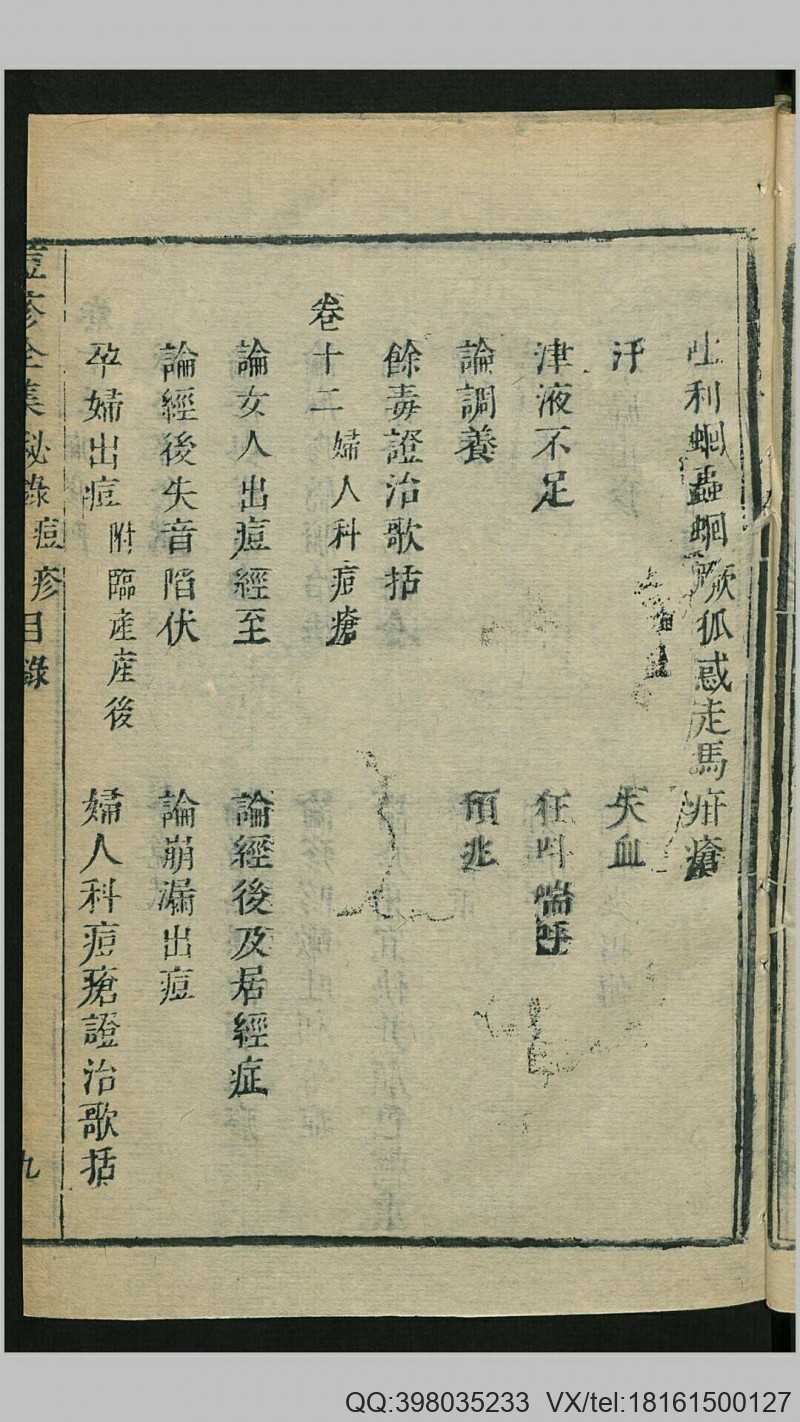 吐利蛔蟲蛔厥狐惑走馬疳瘡
汗 失血
津液不足 狂叫喘呼
論調養 預兆
餘毒證治歌括
卷十二 婦人科痘瘡
論女人出痘經至 論經後及居經症
論經後失音陷伏 論崩漏出痘
孕婦出痘 附臨產產後 婦人科痘瘡證治歌括
痘疹全集秘錄 痘疹目錄 九
QQ:398035233 VX/tel:18161500127